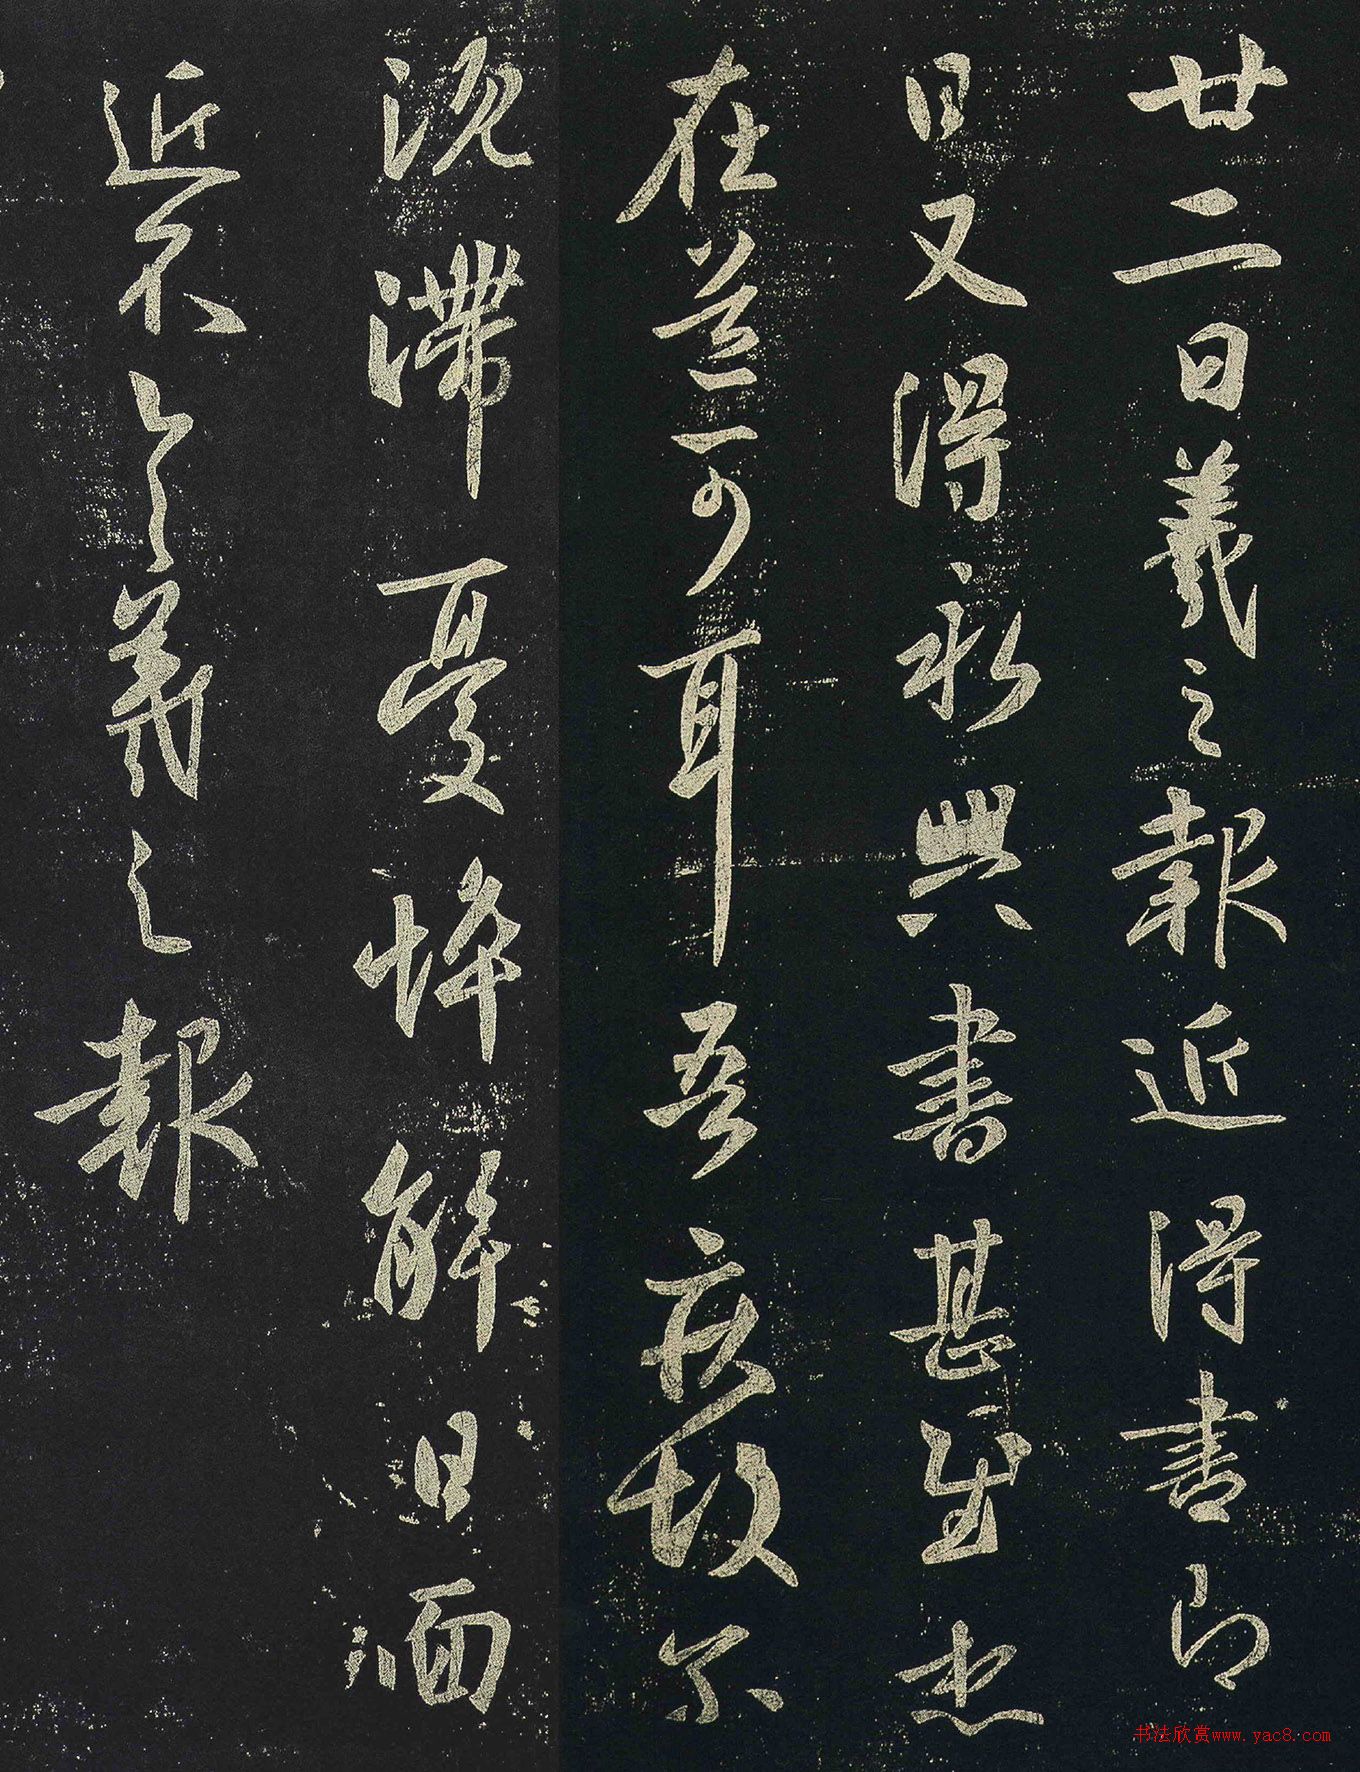 廿二日羲之報近得書即
日又得永興書甚慰想
在道可耳吾疾故尔
沈滯憂悴解日面
近不具羲之報
书法欣赏www.yac8.com